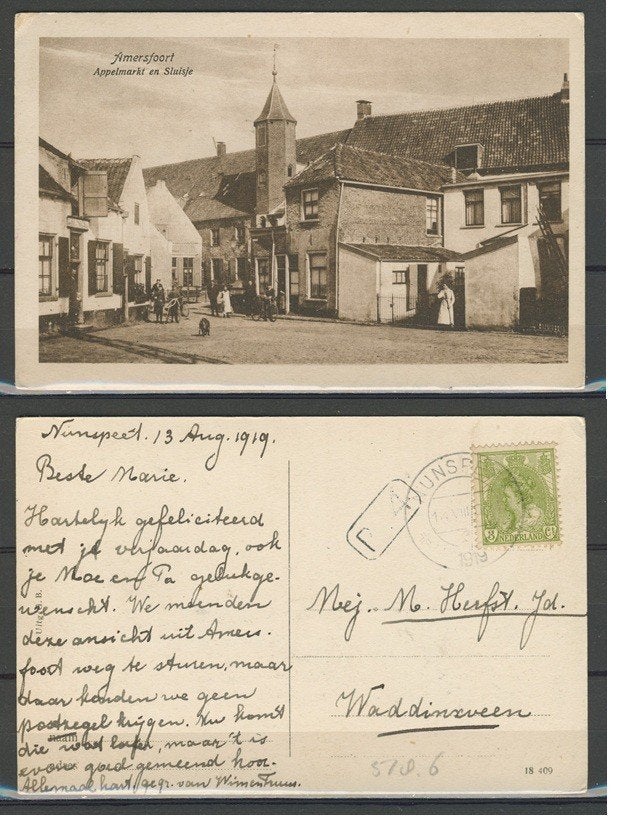 Amersfoort
Appelmarkt en Sluisje
Nunspeet. 13 Aug. 1919.
Beste Marie.
Hartelyk gefeliciteerd
met je verjaardag, ook
je Moe en Pa gelukge-
wenscht. We meenden
deze ansicht uit Amers.
foort weg te sturen, maar
daar konden we geen
postzegel krijgen. Nu komt
die wat later, maar 't is
even goed gemeend hoor.
Allemaal hart. gegr. van Wim en Truus.
Uitg. B.
naam
NUNSP
1919
P
3 NEDERLAND Ct
Mej. M. Herfst. Jd.
Waddinxveen
518.6
18 409